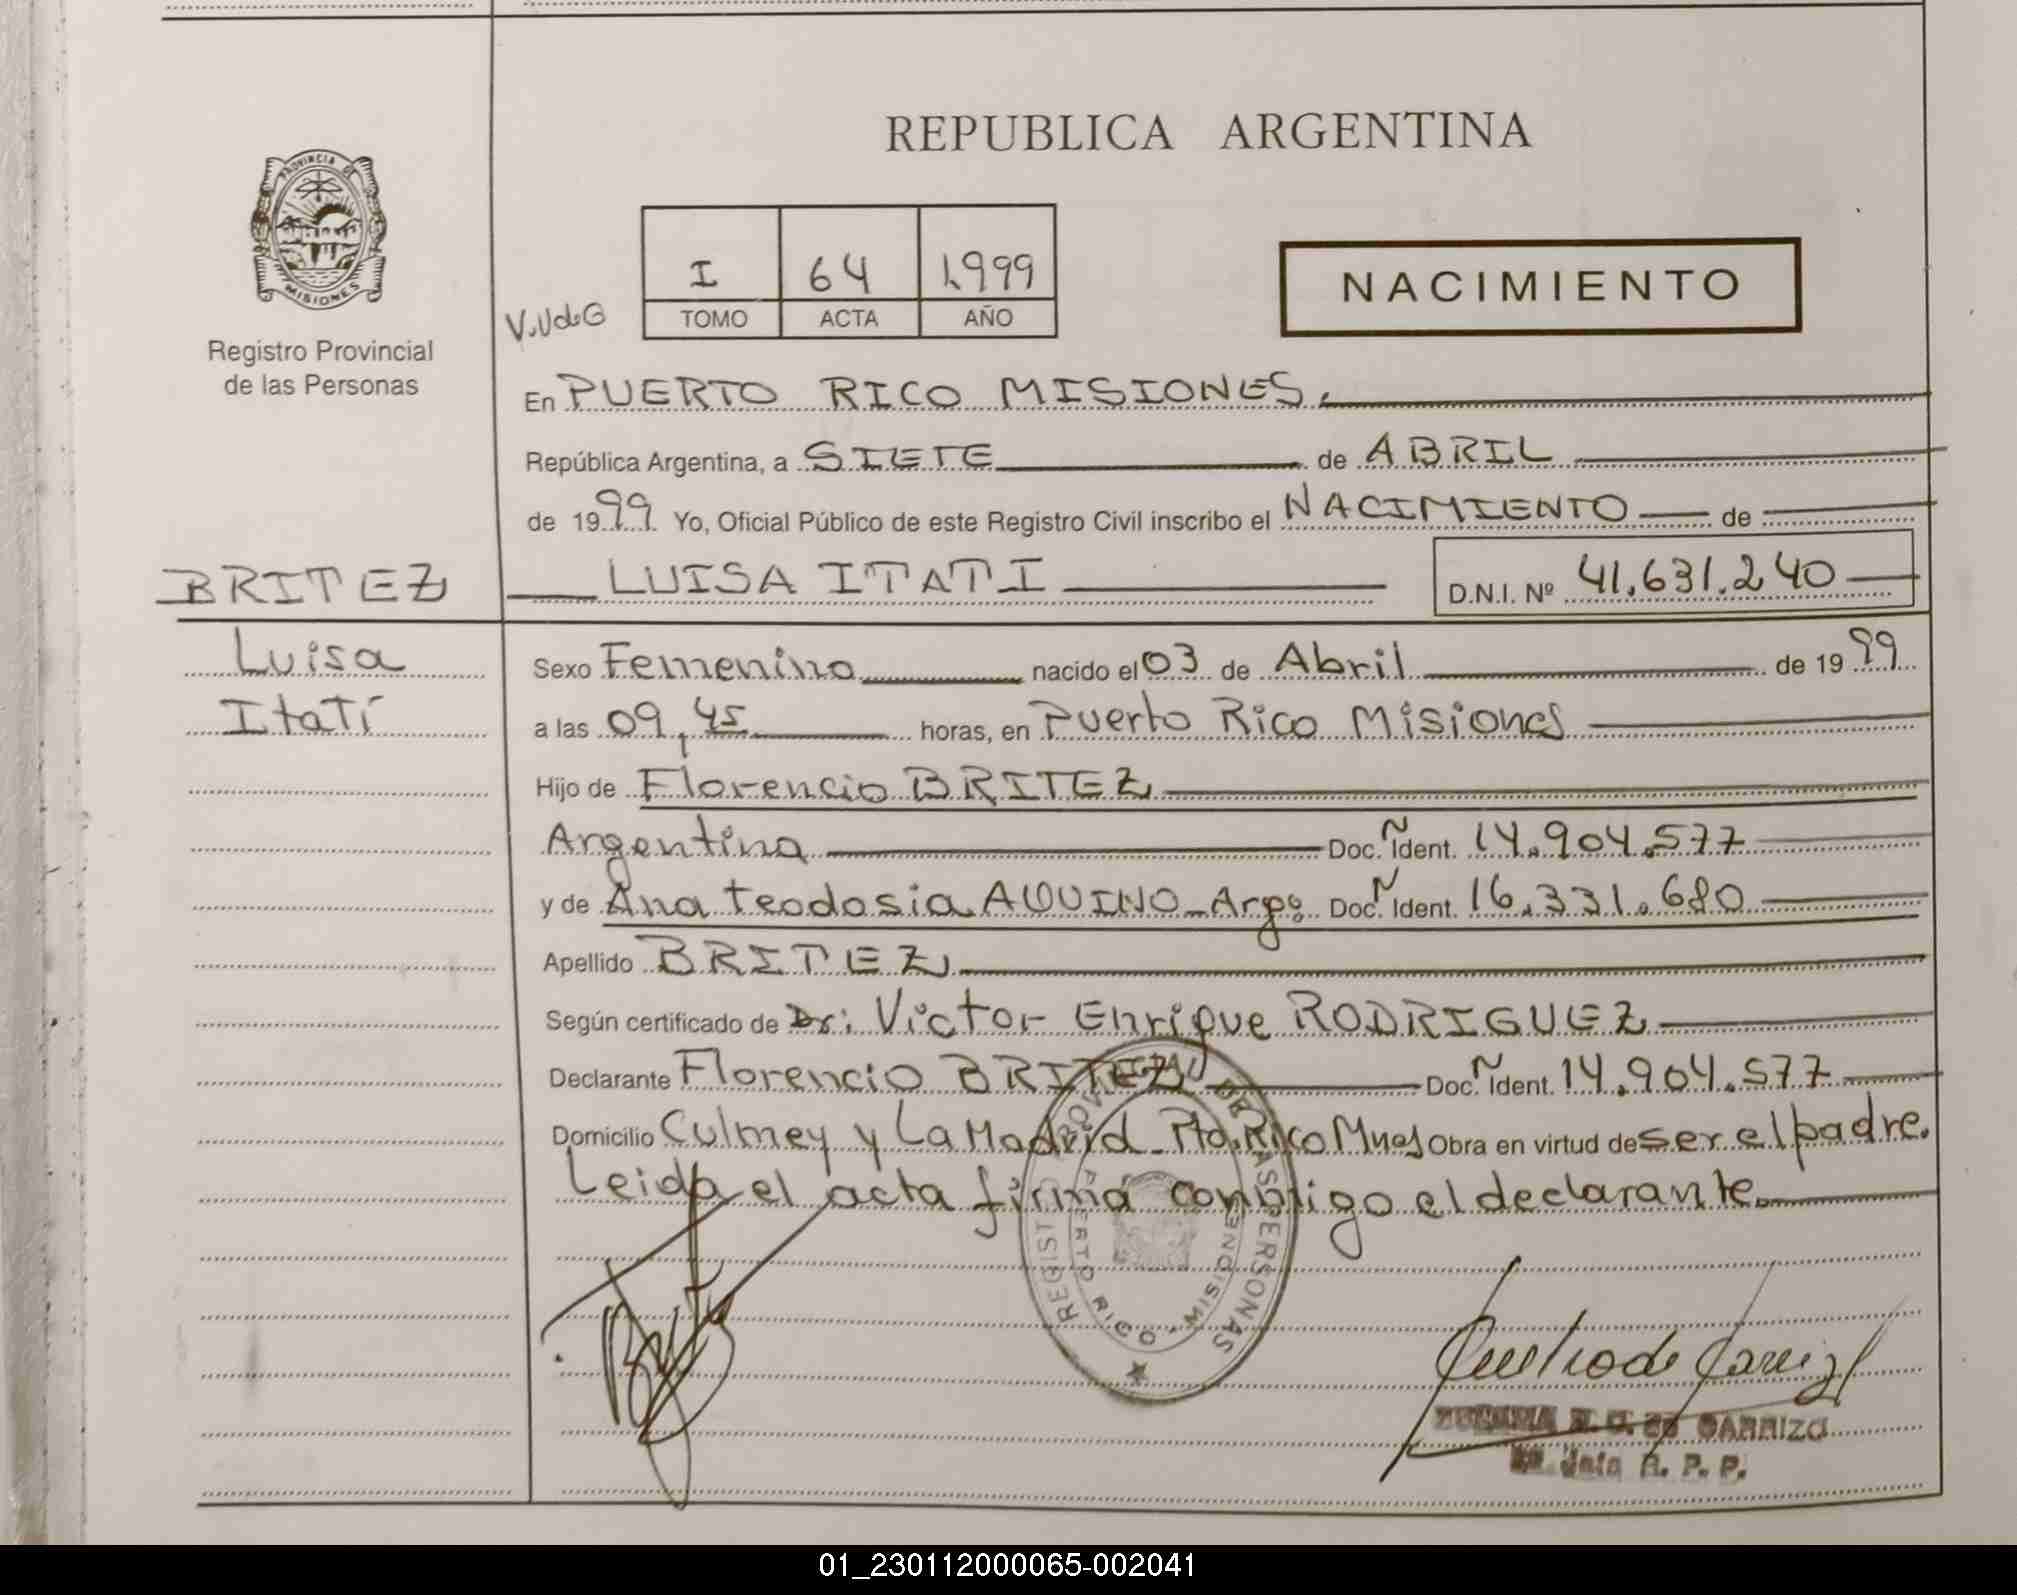 REPUBLICA ARGENTINA
PROVINCIA DE
MISIONES
Registro Provincial
de las Personas
I 64 1.999
TOMO ACTA AÑO
NACIMIENTO
En PUERTO RICO MISIONES.
República Argentina, a SIETE de ABRIL
de 1999 Yo, Oficial Público de este Registro Civil inscribo el NACIMIENTO de
BRITEZ LUISA ITATI D.N.I. Nº 41.631.240
Luisa Sexo Femenino nacido el 03 de Abril de 1999
Itatí a las 09,45 horas, en Puerto Rico Misiones
Hijo de Florencio BRITEZ
Argentina Doc. Ident. 14.904.577
y de Ana Teodosia AQUINO - Arg: Doc. Ident. 16.331.680
Apellido BRITEZ
Según certificado de Dr: Victor Enrique RODRIGUEZ
Declarante Florencio BRITEZ Doc. Ident. 14.904.577
Domicilio Culmey y La Madrid - Pto. Rico Mnes Obra en virtud de ser el padre.
Leida el acta firma conmigo el declarante.
REGISTRO PROVINCIAL DE LAS PERSONAS
PUERTO RICO - MISIONES
de CARRIZO
R. P. P.
01_230112000065-002041